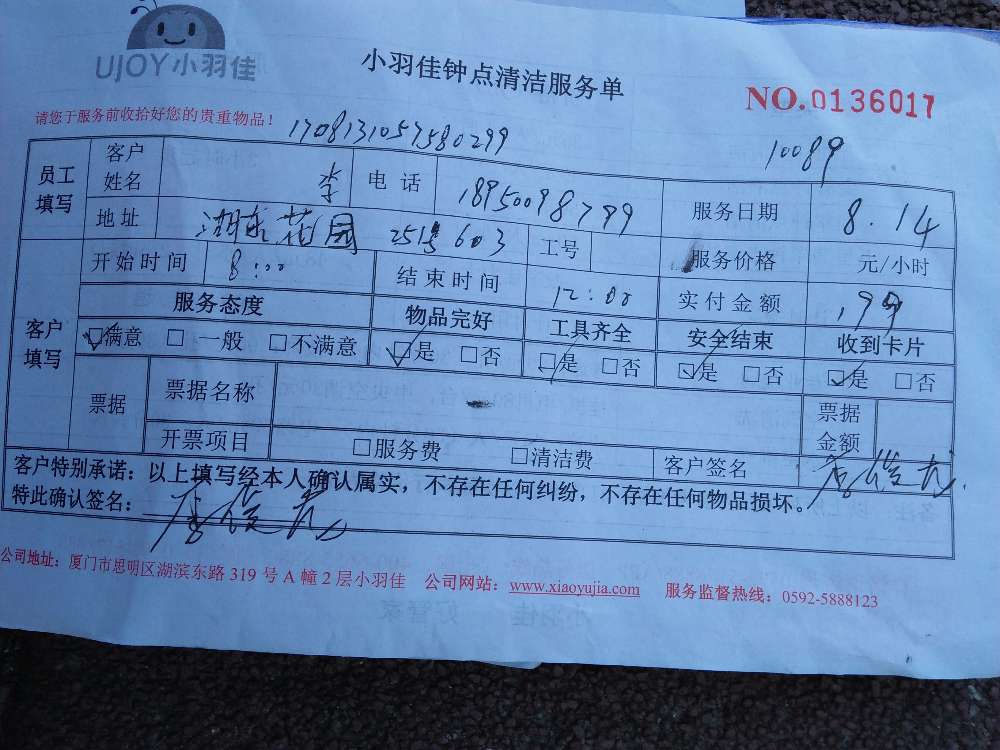 UJOY小羽佳
小羽佳钟点清洁服务单
NO.0136017
请您于服务前收拾好您的贵重物品！
1708131057580299
10089
员工填写
客户姓名 李 电话 18950098799 服务日期 8.14
地址 湖东花园 251号603 工号 服务价格 元/小时
客户填写
开始时间 8:00 结束时间 12:00 实付金额 199
服务态度 物品完好 工具齐全 安全结束 收到卡片
☑满意 □一般 □不满意 ☑是 □否 ☑是 □否 ☑是 □否 ☑是 □否
票据 票据名称 票据金额
开票项目 □服务费 □清洁费 客户签名
客户特别承诺：以上填写经本人确认属实，不存在任何纠纷，不存在任何物品损坏。
特此确认签名：
公司地址：厦门市思明区湖滨东路 319 号 A 幢 2 层小羽佳 公司网站：www.xiaoyujia.com 服务监督热线：0592-5888123